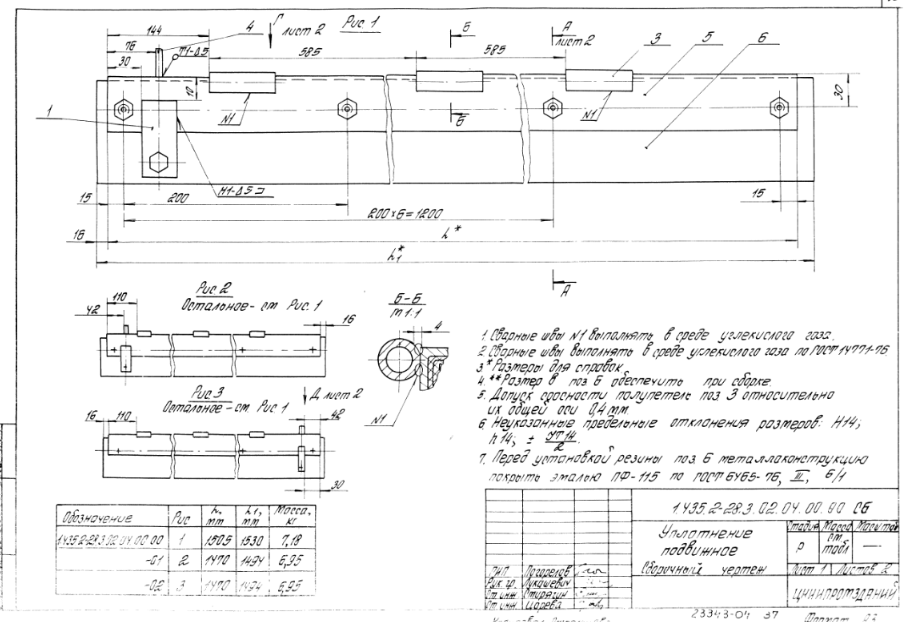 Рис. 1
Г
лист 2
144
76
30
4
Т1-Δ5
585
Б
585
А
лист 2
3
5
6
10
N1
N1
30
1
Б
Н1-Δ5
15
200
15
200×6=1200
16
L*
L1*
А
Рис 2
Остальное - см Рис. 1
110
42
16
Б-Б
М 1:1
4
N1
Рис 3
Остальное - см Рис 1
Д лист 2
16
110
42
30
1. Сварные швы N1 выполнять в среде углекислого газа.
2. Сварные швы выполнять в среде углекислого газа по ГОСТ 14771-76
3 * Размеры для справок
4. ** Размер в поз 6 обеспечить при сборке.
5. Допуск соосности полупетель поз 3 относительно
их общей оси 0,4 мм
6 Неуказанные предельные отклонения размеров: Н14;
h14; ± УТ14/2
7. Перед установкой резины поз. 6 металлоконструкцию
покрыть эмалью ПФ-115 по ГОСТ 6465-76, III, 6/1
Обозначение Рис L, мм L1, мм Масса, кг
1.435.2-28.3.02.04.00.00 1 1505 1530 7,18
-01 2 1470 1494 6,95
-02 3 1470 1494 6,95
1.435.2-28.3.02.04.00.00 СБ
Уплотнение
подвижное
Сборочный чертеж
Стадия Масса Масштаб
Р см табл —
Лист 1 Листов 2
ЦНИИПРОМЗДАНИЙ
Рук. гр. Лукашевич
Ст инж
Ст. инж Царева
23343-04 37
Формат